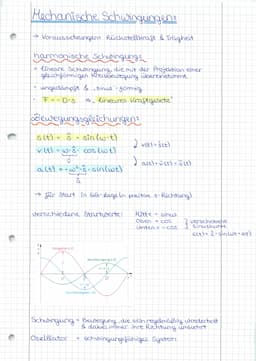 Mechanische Schwingungen:
→ Voraussetzungen: Rückstellkraft & Trägheit
harmonische Schwingung:
• lineare Schwingung, die mit der Projektion einer gleichförmigen Kreisbewegung übereinstimmt
• ungedämpft & sinus-förmig
• F = -D·s ⇒ "lineares Kraftgesetz"
Bewegungsgleichungen:
s(t) = ŝ · sin(ω·t)
v(t) = ω·ŝ · cos(ω·t)
v(t) = ṡ(t)
a(t) = -ω²·ŝ · sin(ω·t)
→ für Start in GG-Lage (in positive s-Richtung)
verschiedene Startwerte:
Mitte = sinus
Oben = cos
Unten = -cos
verschobene Sinuskurve
Schwingung = Bewegung, die sich regelmäßig wiederholt & dabei immer ihre Richtung umkehrt
Oszillator = schwingungsfähiges System